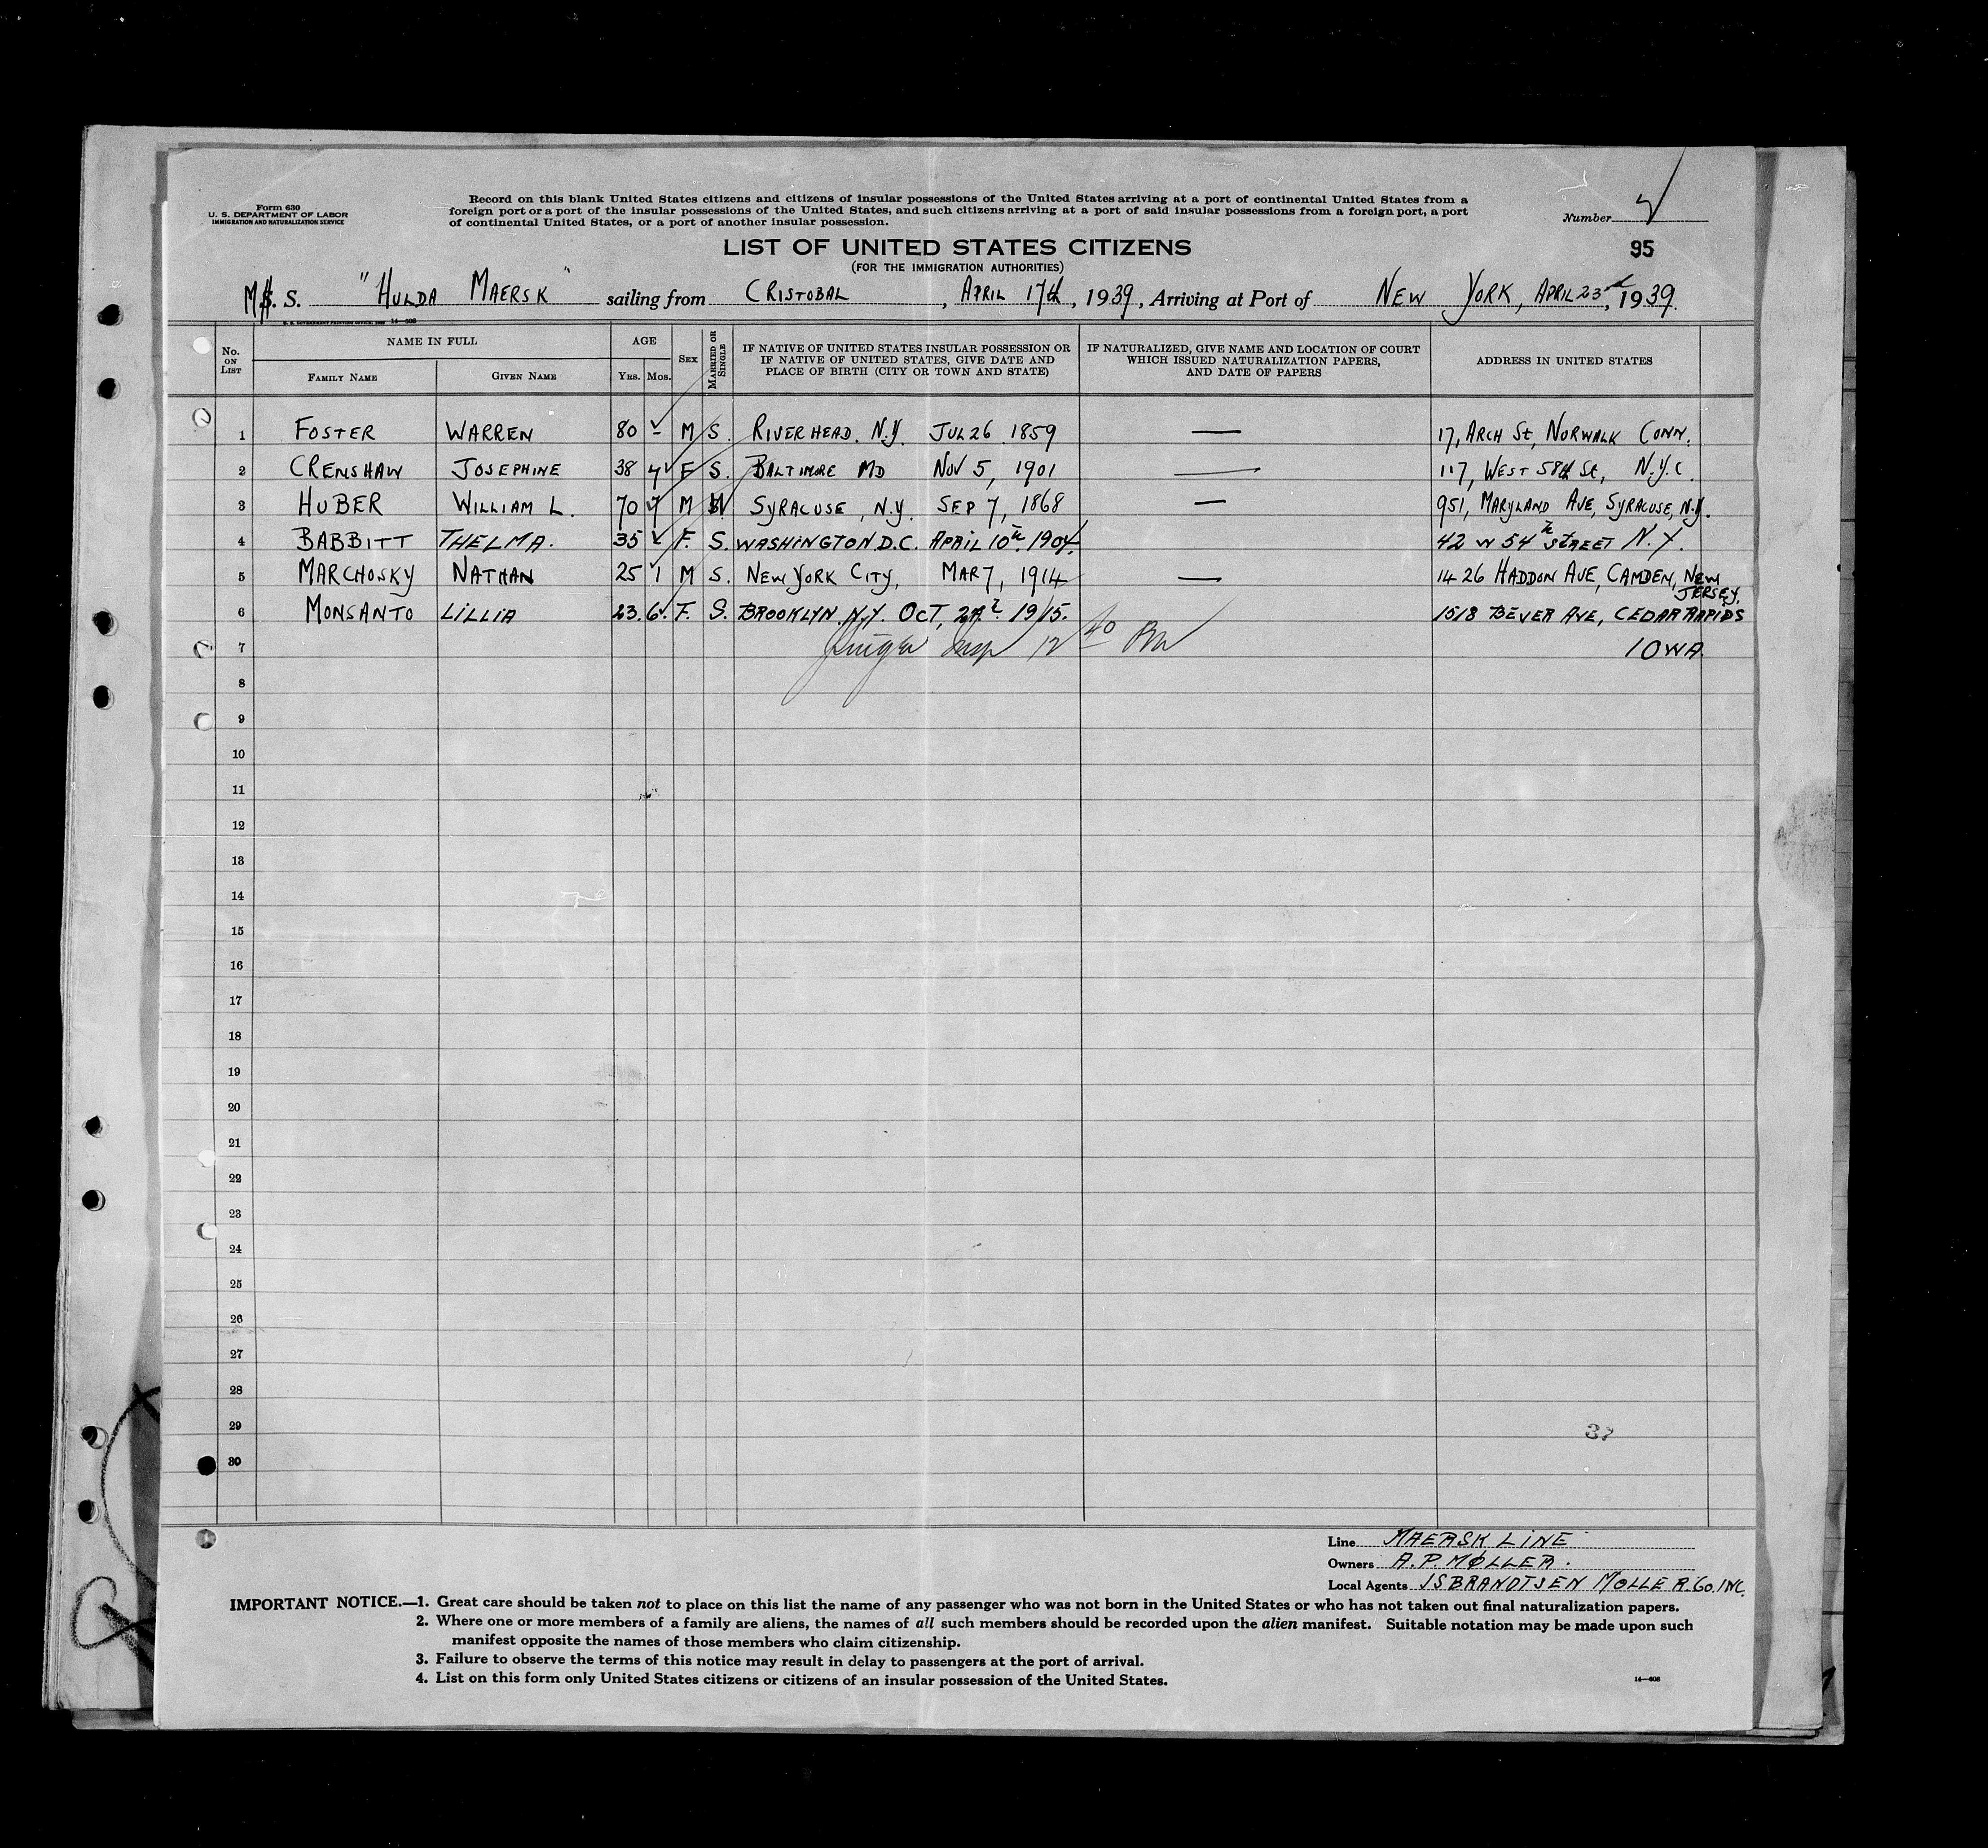 Form 630
U. S. DEPARTMENT OF LABOR
IMMIGRATION AND NATURALIZATION SERVICE
Record on this blank United States citizens and citizens of insular possessions of the United States arriving at a port of continental United States from a
foreign port or a port of the insular possessions of the United States, and such citizens arriving at a port of said insular possessions from a foreign port, a port
of continental United States, or a port of another insular possession.
Number
LIST OF UNITED STATES CITIZENS
95
(FOR THE IMMIGRATION AUTHORITIES)
M. S. "HULDA MAERSK" sailing from CRISTOBAL, APRIL 17th, 1939, Arriving at Port of NEW YORK, APRIL 23rd, 1939.
No. ON LIST
NAME IN FULL
FAMILY NAME
GIVEN NAME
AGE
YRS. MOS.
SEX
MARRIED OR SINGLE
IF NATIVE OF UNITED STATES INSULAR POSSESSION OR
IF NATIVE OF UNITED STATES, GIVE DATE AND
PLACE OF BIRTH (CITY OR TOWN AND STATE)
IF NATURALIZED, GIVE NAME AND LOCATION OF COURT
WHICH ISSUED NATURALIZATION PAPERS,
AND DATE OF PAPERS
ADDRESS IN UNITED STATES
1 FOSTER WARREN 80 – M S. RIVERHEAD. N.Y. JUL 26 1859 — 17, ARCH St, NORWALK CONN.
2 CRENSHAW JOSEPHINE 38 F S. BALTIMORE MD NOV 5, 1901 — 117, WEST 58th St, N.Y.C.
3 HUBER WILLIAM L. 70 7 M W SYRACUSE, N.Y. SEP 7, 1868 — 951, MARYLAND AVE, SYRACUSE, N.Y.
4 BABBITT THELMA. 35 F. S. WASHINGTON D.C. APRIL 10th. 1904. 42 W 54th STREET N.Y.
5 MARCHOSKY NATHAN 25 1 M S. NEW YORK CITY, MAR 7, 1914 — 1426 HADDON AVE, CAMDEN, NEW
JERSEY.
6 MONSANTO LILLIA 23. 6. F. S. BROOKLYN. N.Y. OCT, 1915. 1518 BEVER AVE, CEDAR RAPIDS
7 IOWA.
8
9
10
11
12
13
14
15
16
17
18
19
20
21
22
23
24
25
26
27
28
29
30
37
Line MAERSK LINE
Owners A.P. MØLLER.
Local Agents J S BRANDTSEN MOLLER. Co. INC.
IMPORTANT NOTICE.—1. Great care should be taken not to place on this list the name of any passenger who was not born in the United States or who has not taken out final naturalization papers.
2. Where one or more members of a family are aliens, the names of all such members should be recorded upon the alien manifest. Suitable notation may be made upon such
manifest opposite the names of those members who claim citizenship.
3. Failure to observe the terms of this notice may result in delay to passengers at the port of arrival.
4. List on this form only United States citizens or citizens of an insular possession of the United States.
14—608